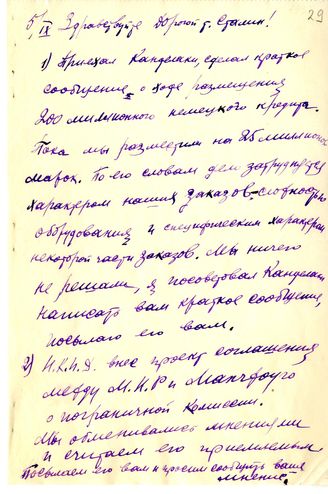 29
5/IX Здравствуйте дорогой т. Сталин!
1) Приехал Канделаки, сделал краткое
сообщение о ходе размещения
200 миллионного немецкого кредита.
Пока мы разместили на 25 миллионов
марок. По его словам дело затрудняется
характером наших заказов – сложностью
оборудования и специфическим характером
некоторой части заказов. Мы ничего
не решали, я посоветовал Канделаки
написать вам краткое сообщение,
посылаю его вам.
2) Н.К.И.Д. внес проект соглашения
между М.Н.Р и Манчжоуго
о пограничной комиссии.
Мы обменивались мнениями
и считаем его приемлемым.
Посылаем его вам и просим сообщить ваше
мнение.